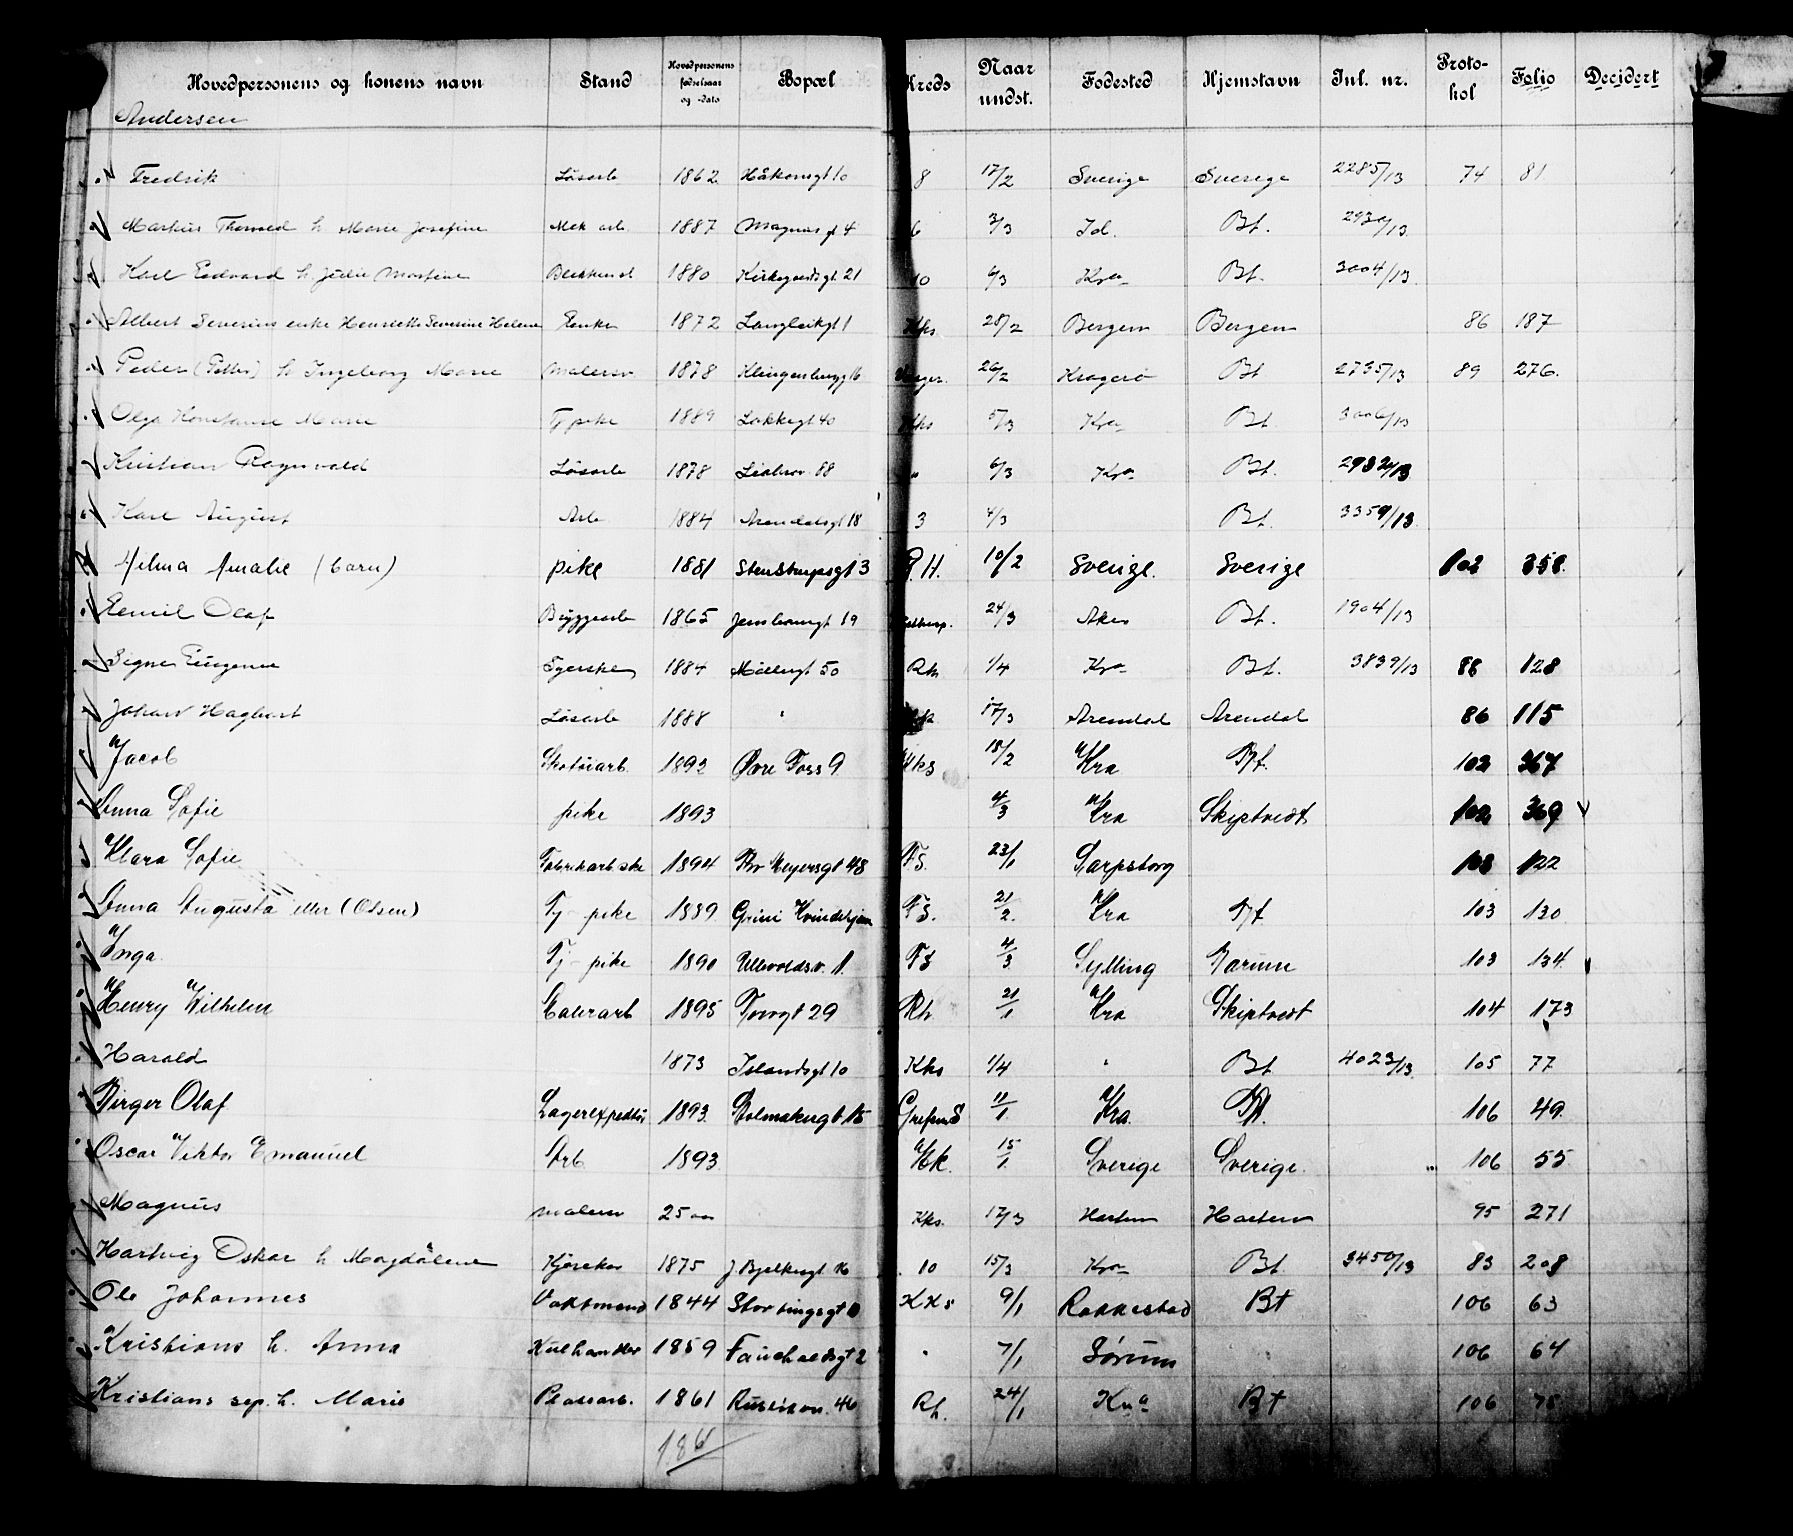 Hovedpersonens og konens navn Stand Hovedpersonens fødselsaar og -dato Bopæl Kreds Naar undst. Fødested Hjemstavn Inl. nr. Protokol Folio Decidert
Andersen
Fredrik Løsarb 1862 Håkonsgt 10 8 17/2 Sverige Sverige 2285/13 74 81
Markus h Marie Josefine Mek arb. 1887 Magnus gt 4 6 3/3 Id. Bt. 2930/13
Karl Edvard h. Julie 1880 Kirkegaardsgt 21 10 6/3 Kra Bt. 3004/13
Albert Severin enke Henriette Severine Helene Enke 1872 Langleikgt 1 Kks 28/2 Bergen Bergen 86 187
Peder (Petter) h Ingeborg Marie Malersv 1878 Klingenbergg 16 26/2 Kragerø Bt 2735/13 89 276.
Olga Konstanse Marie Tj pike 1889 Lakkegt 40 Kks 5/3 Kra Bt. 3006/13
Kristian Ragnvald Løsarb 1878 88 " 6/3 Kra Bt. 2982/13
Karl August Arb 1884 Arendalsgt 18 3 4/3 Bt. 3359/13
Hilma Amalie (barn) pike 1881 Stenstrupsgt 3 R.H. 10/2 Sverige. Sverige 102 358.
Emil Olaf Byggearb 1865 19 24/3 Aker Bt. 1904/13
Signe Eugenie Syerske 1884 Møllergt 50 Rh 1/4 Kra Bt. 3839/13 88 128
Johan Hagbart Løsarb 1888 " 17/3 Arendal Arendal 86 115
Jacob Skotøiarb. 1892 Øvre Foss 9 Kks 18/2 Kra Bt. 102 367
Anna Sofie pike 1893 4/3 Kra Skiptvedt 102 369
Klara Sofie Fabrikarb.ske 1894 Thv Meyersgt 48 FS. 23/1 Sarpsborg 103 122
Anna Augusta eller (Olsen) Tj - pike 1889. Grini Kvindehjem FS. 21/2. Kra Bt 103 130
Inga Tj - pike 1890 Ullevoldsv. 1. FS 4/3 Sylling Bærum 103 134
Henry Wilhelm 1895 Torvgt 29 Rh 21/1 Kra Skiptvedt 104 173
Harald 1873 Islandsgt 10 Kks 1/4 " Bt 4023/13 105 77
Birger Olaf Lagerexpeditør 1893. Stolmakergt 15 GrefsenS 11/1 Kra. Bt. 106 49.
Oscar Viktor Emanuel Arb 1893 Kk. 15/1. Sverige Sverige. 106 55
Magnus malersv 25 aar Kks. 17/3 Horten Horten 95 271
Hartvig Oskar h Magdalene Kjørekar 1875 J. Bjelkesgt 16 10 15/3 Kra Bt. 3450/13 83 208
Ole Johannes Vaktmand 1844 Stortingsgt KKs 9/1 Rakkestad Bt 106 63
Kristians h. Anna Kulhandler 1859 Fauchaldsgt 2 " 7/1 Sørum 106 64
Kristians sep. h. Marie Pladsarb. 1861 46 Rh. 24/1 Kra Bt 106 75